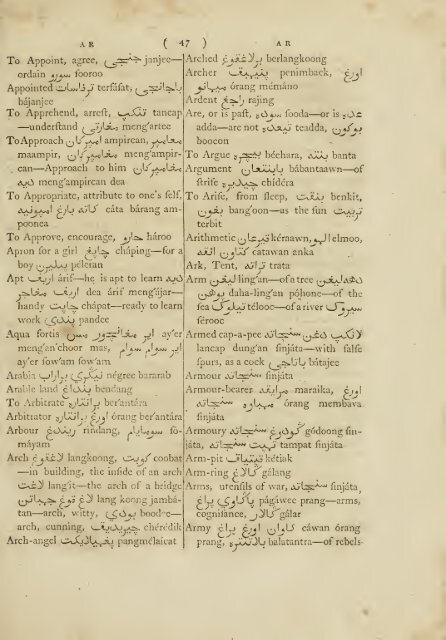 A R ( 47 ) A R
To Appoint, agree, جنجي janjee—
ordain سورو sooroo
Appointed ترفاسات terfásat, باجنجي
bájanjee
To Apprehend, arrest, تنكب tancap
—understand مغارتي meng'artee
To Approach امبيركان ampircan, معامبير
maampir, مغامبيركان meng'ampir-
can—Approach to him مغامبيركان
ديد meng'ampircan dea
To Appropriate, attribute to one's self,
كات بارغ امبونيد cáta bárang am-
poonea
To Approve, encourage, هارو hároo
Apron for a girl چاپغ cháping—for a
boy بيليرن peleran
Apt عاريف árif—he is apt to learn ديد
عاريف مغاجر dea árif meng'ájar—
handy چاپت chápat—ready to learn
work پندي pandee
Aqua fortis اير ay'er
meng'an'choor mas, اير سوام سوام
ay'er sow'am sow'am
Arabia نيكري باراراب négree bararab
Arable land بندغ bendang
To Arbitrate برانتارا ber'antára
Arbitrator اورغ برانتارا órang ber'antára
Arbour ريندغ rindang, سومايام so-
máyam
Arch لاغكوغ langkoong, كوبت coobat
—in building, the inside of an arch
لاغت lang'it—the arch of a bridge
لاغ كوغ جمباتن lang koong jambá-
tan—arch, witty, بودي bood-e—
arch, cunning, چيريديق chérédik
Arch-angel pangmélaicat
Arched برلاغكوغ berlangkoong
Archer اورغ penimback,
órang mémáno
Ardent راجغ rajing
Are, or is past, سوده sooda—or is عده
adda—are not تيعده teadda, بوكون
boocon
To Argue بيچر béchara, بنته banta
Argument بابنتهان bábantaawn—of
strife چيديره chidéra
To Arise, from sleep, بنقت benkit,
بغون bang'oon—as the sun تربيت
terbit
Arithmetic kérnawn, الهو elmoo,
catawan anka
Ark, Tent, تراته trata
Arm ليغن ling'an—of a tree
daha-ling'an póhone—of the
sea تيلوك télooc—of a river سيروك
sérooc
Armed cap-a-pee
lancap dung'an sinjáta—with false
spurs, as a cock باتاجي bátajee
Armour سنجات sinjáta
Armour-bearer مرايك maraika, اورغ
órang membava
sinjáta
Armoury گودوغ سنجات góodoong sin-
játa, تمپت سنجات tampat sinjáta
Arm-pit كتيق kétiak
Arm-ring گالغ gálang
Arms, utensils of war, سنجات sinjáta,
págáwee prang—arms,
cognisance, گالر gálar
Army كاوان اورغ پراغ cáwan órang
prang, بالانتر balatantra—of rebels